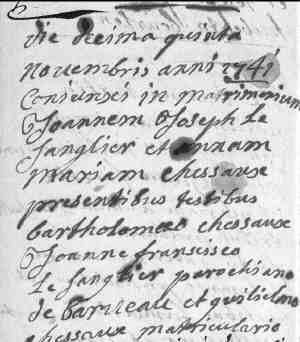 die decima quinta
novembris anni 1741
Coniunxi in matrimonium
Joannem Joseph Le
Sanglier et annam
mariam chessaux
presentibus testibus
bartholomeo chessaux
Joanne francisco
Le Sanglier parochiano
de et guilielmo
chessaux matriculario